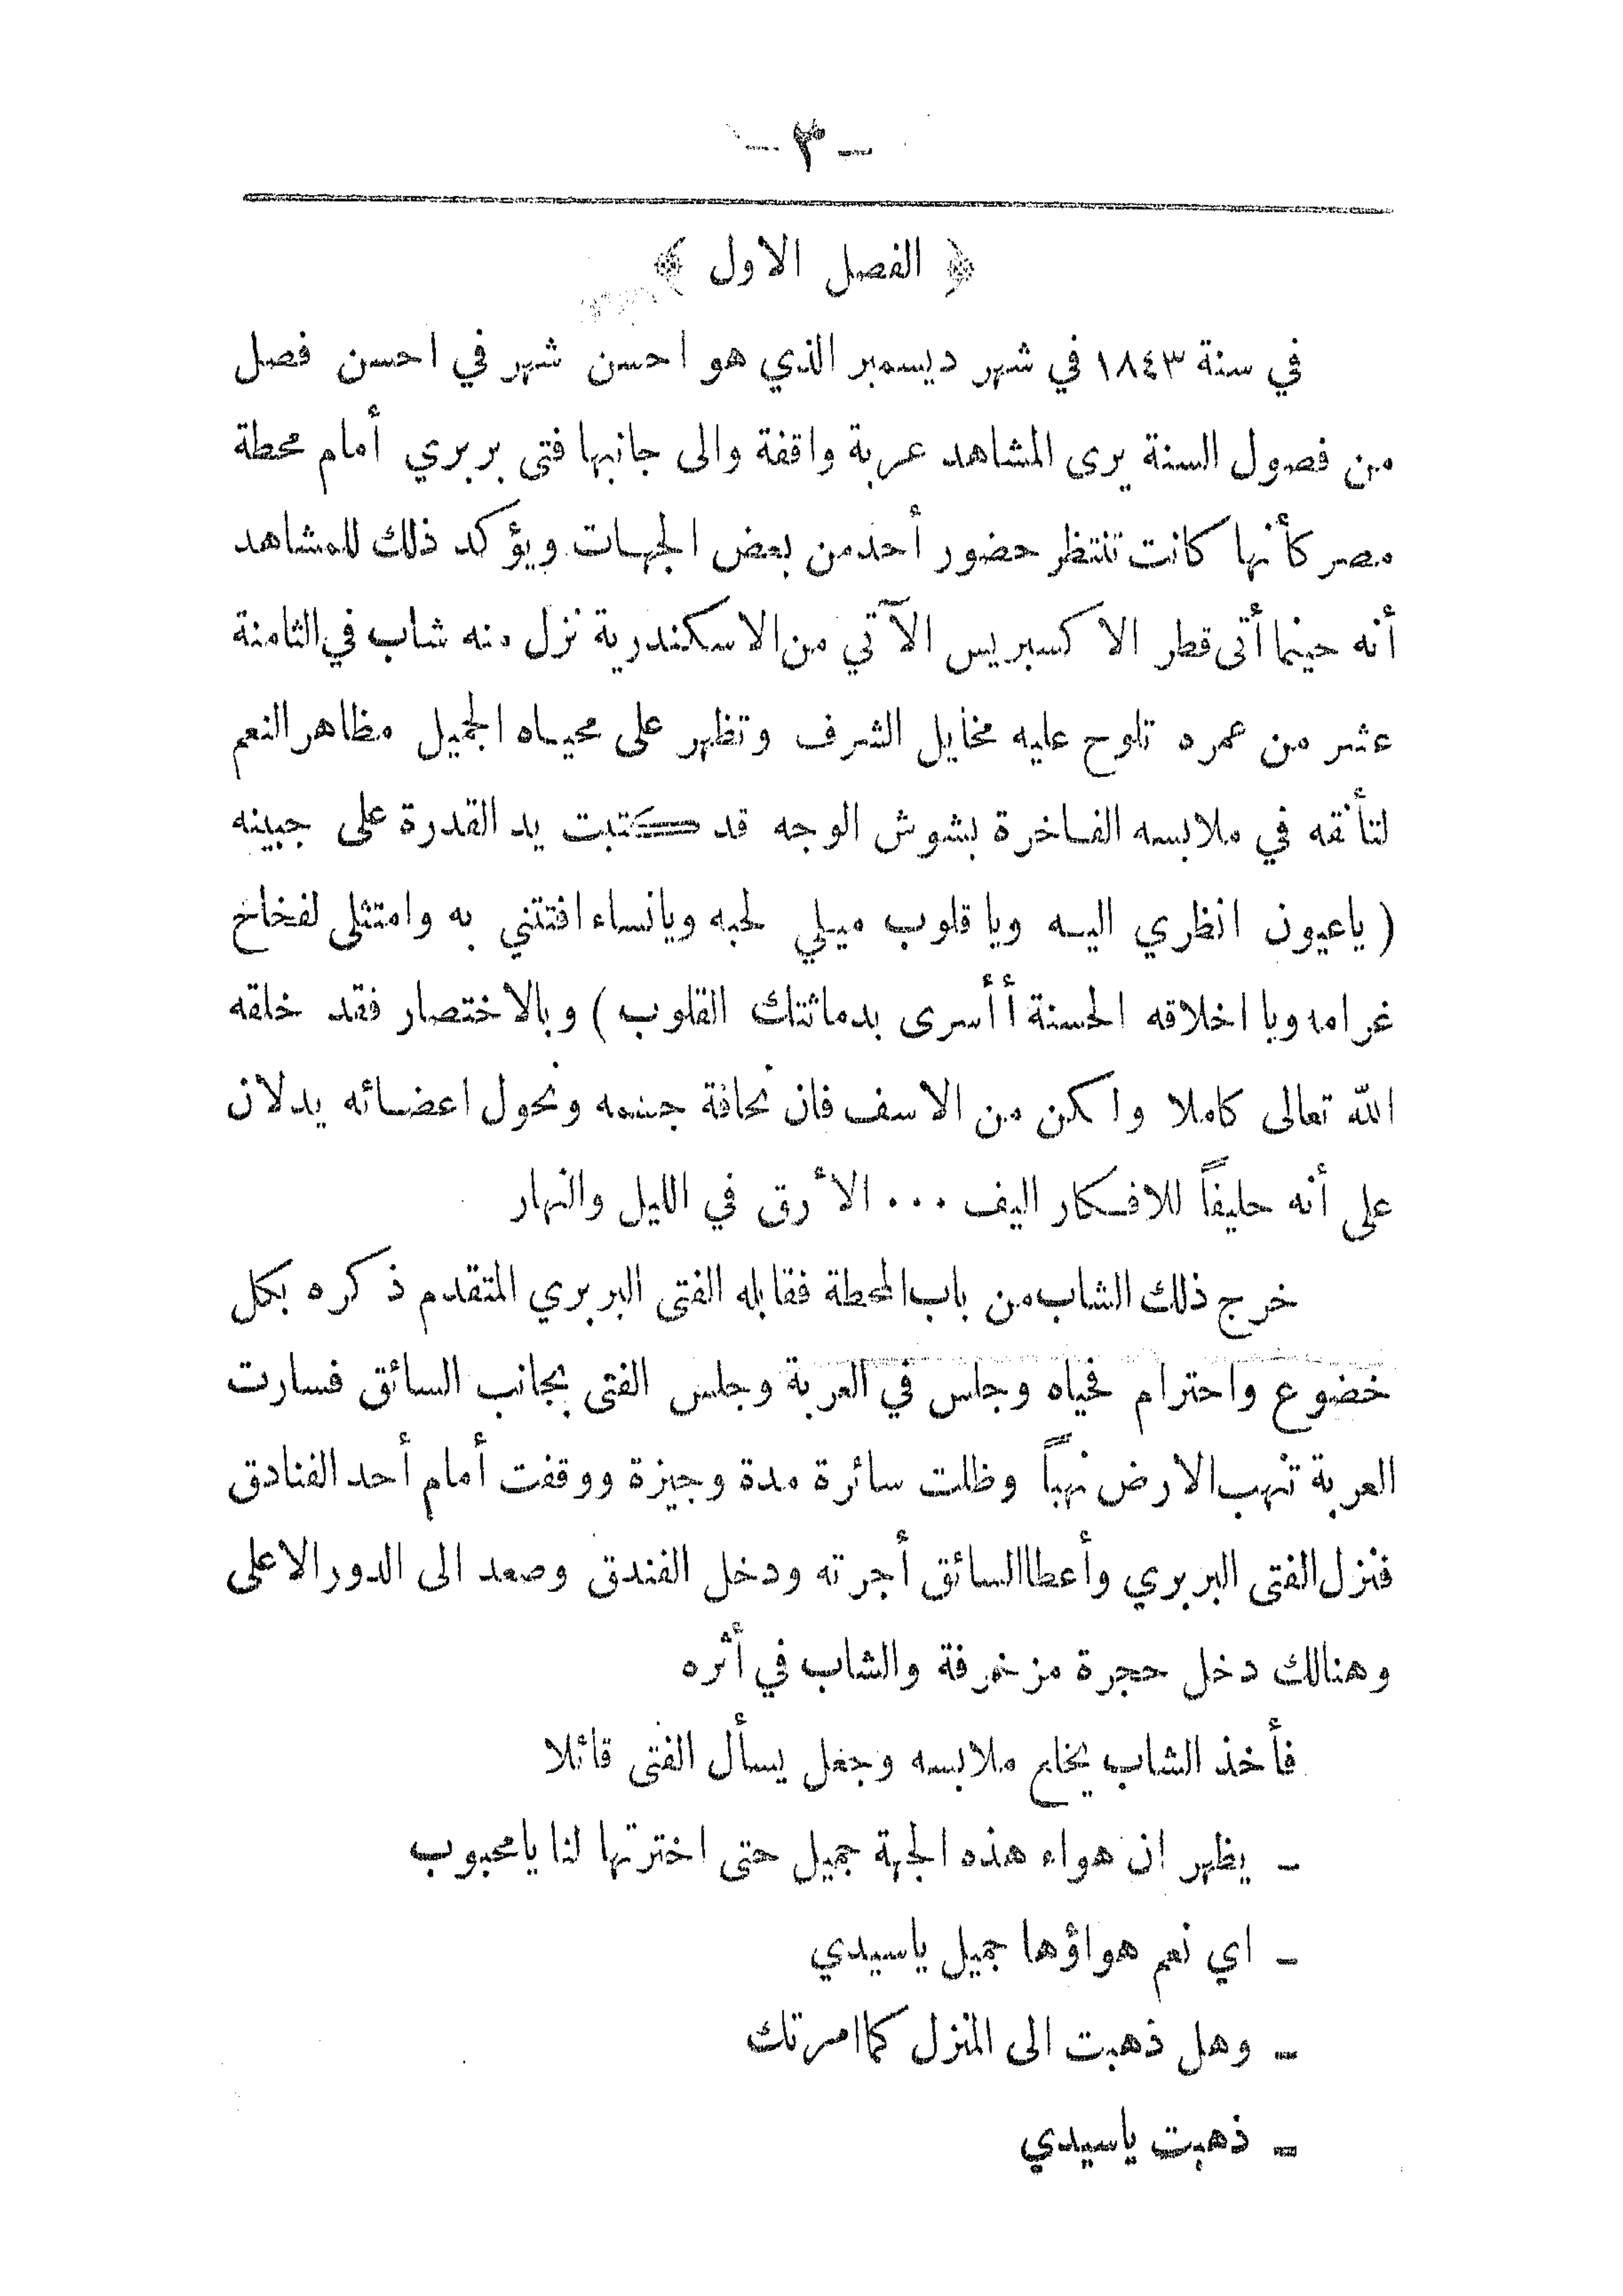 - ٣ -
﴿ الفصل الاول ﴾
في سنة ١٨٤٣ في شهر ديسمبر الذي هو احسن شهر في احسن فصل
من فصول السنة يرى المشاهد عربة واقفة والى جانبها فتى بربري أمام محطة
مصر كأنها كانت تنتظر حضور أحد من بعض الجهات ويؤكد ذلك للمشاهد
أنه حينما أتى قطر الاكسبريس الآتي من الاسكندرية نزل منه شاب في الثامنة
عشر من عمره تلوح عليه مخايل الشرف وتظهر على محياه الجميل مظاهر النعم
لتأنقه في ملابسه الفاخرة بشوش الوجه قد كتبت يد القدرة على جبينه
( ياعيون انظري اليه ويا قلوب ميلي لحبه ويانساء افتتني به وامتثلى لفخاخ
غرامه ويا اخلاقه الحسنة أأسرى بدماثتك القلوب ) وبالاختصار فقد خلقه
الله تعالى كاملا ولكن من الاسف فان نحافة جسمه ونحول اعضائه يدلان
على أنه حليفاً للافكار اليف ٠٠٠ الأرق في الليل والنهار
خرج ذلك الشاب من باب المحطة فقابله الفتى البربري المتقدم ذكره بكل
خضوع واحترام فحياه وجلس في العربة وجلس الفتى بجانب السائق فسارت
العربة تنهب الارض نهباً وظلت سائرة مدة وجيزة ووقفت أمام أحد الفنادق
فنزل الفتى البربري وأعطا السائق أجرته ودخل الفندق وصعد الى الدور الاعلى
وهنالك دخل حجرة مزخرفة والشاب في أثره
فأخذ الشاب يخلع ملابسه وجعل يسأل الفتى قائلا
- يظهر ان هواء هذه الجهة جميل حتى اخترتها لنا يامحبوب
- اي نعم هواؤها جميل ياسيدي
- وهل ذهبت الى المنزل كما امرتك
- ذهبت ياسيدي